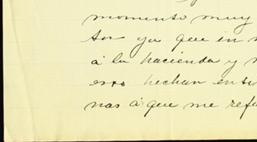 momento muy
tor ya que en
á la hacienda y
esos hechan en
nas á que me refe